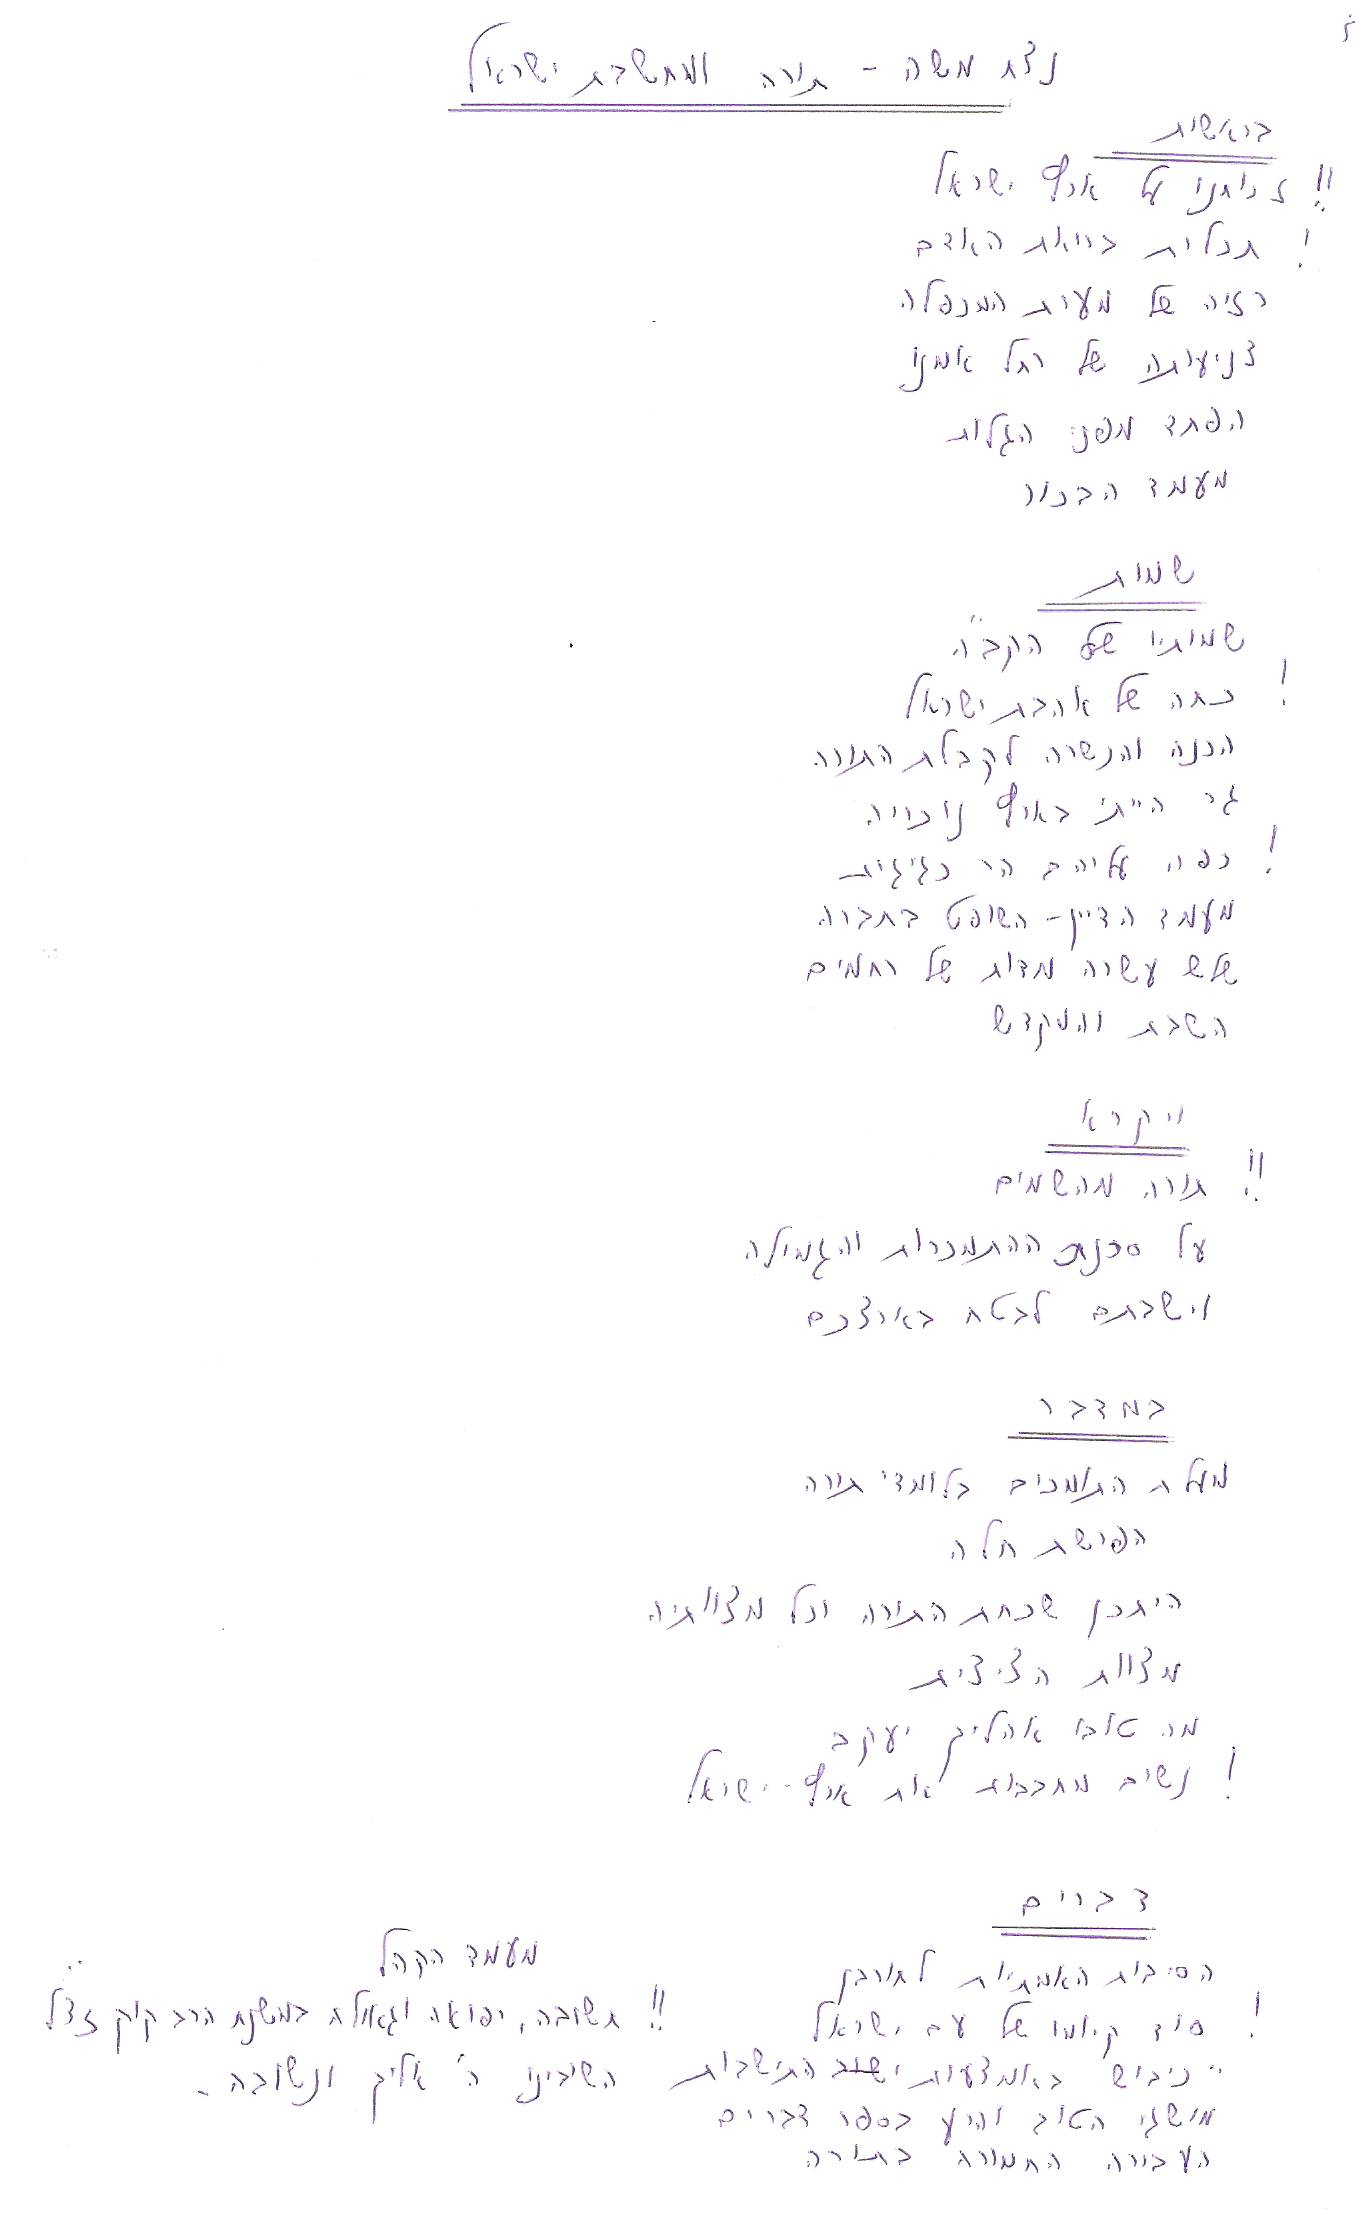 נצח משה - תורה ומחשבת ישראל
בראשית
!! זכותנו על ארץ ישראל
! תכלית בריאת האדם
רזיה של מערת המכפלה
צניעותה של רחל אמנו
הפחד מפני הגלות
מעמד הבכור
שמות
שמותיו של הקב"ה
! כחה של אהבת ישראל
הכנה והכשרה לקבלת התורה
גר הייתי בארץ נוכריה
! כפה עליהם הר כגיגית
מעמד הדיין - השופט בחברה
שלש עשרה מדות של רחמים
השבת והמקדש
ויקרא
!! תורה מהשמים
על סכנת ההתמכרות והגמילה
וישבתם לבטח בארצכם
במדבר
מעלת התומכים בלומדי תורה
הפרשת חלה
היתכן שכחת התורה וכל מצוותיה
מצוות הציצית
מה טובו אהליך יעקב
! נשים מחבבות את ארץ-ישראל
דברים
הסיבות האמתיות לחורבן
! סוד קיומו של עם ישראל
"כיבוש" באמצעות התישבות
מושגי הטוב והרע בספר דברים
העבירה החמורה בתורה
מעמד הקהל
!! תשובה, רפואה וגאולה במשנת הרב קוק זצ"ל
השיבינו ה' אליך ונשובה.